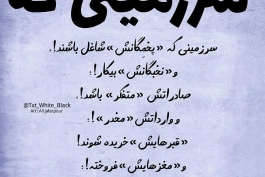 سرزمینی که
سرزمینی که «پخمگانش» شاغل باشند!.
و«نخبگانش» بیکار!؛
صادراتش «متفکر» باشد!.
و وارداتش «مخدر»!؛
«قبرهایش» خریده شوند!
و «مغزهایش» فروخته!؛
@Tst_White_Black